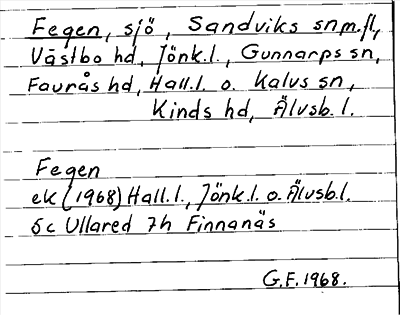 Fegen, sjö, Sandviks sn m.fl,
Västbo hd, Jönk.l., Gunnarps sn,
Faurås hd, Hall.l. o. Kalvs sn,
Kinds hd, Älvsb. l.
Fegen
ek (1968) Hall.l., Jönk.l. o. Älvsb.l.
5c Ullared 7h Finnanäs
G.F. 1968.